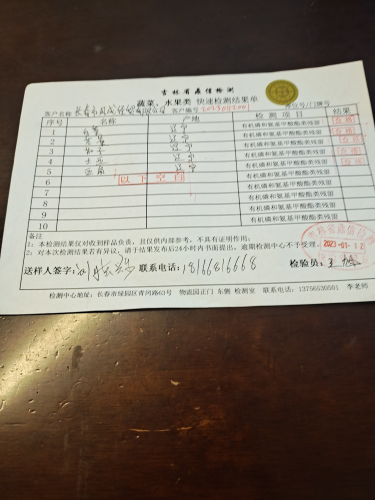 吉林省鑫信检测
蔬菜、水果类 快速检测结果单
客户名称: 长春市 客户编号 摊位号/门牌号
序号 名称 产地 检测项目 结果
1 辽宁 有机磷和氨基甲酸酯类残留 合格
2 辽宁 有机磷和氨基甲酸酯类残留 合格
3 辽宁 有机磷和氨基甲酸酯类残留 合格
4 辽宁 有机磷和氨基甲酸酯类残留 合格
5 辽宁 有机磷和氨基甲酸酯类残留 合格
6 以下空白 有机磷和氨基甲酸酯类残留
7 有机磷和氨基甲酸酯类残留
8 有机磷和氨基甲酸酯类残留
9 有机磷和氨基甲酸酯类残留
10 有机磷和氨基甲酸酯类残留
备注
1: 本检测结果仅对收到样品负责，且仅供内部参考，不具有证明作用。
2: 对本次检测结果若有异议，请于结果发布后24小时内书面提出，逾期检测中心不予受理。
2023-01-12
送样人签字: 联系电话: 18166816668 检验员: 王
检测中心地址: 长春市绿园区青冈路63号 物流园正门 东侧 检测室 联系电话: 13756530501 李老师